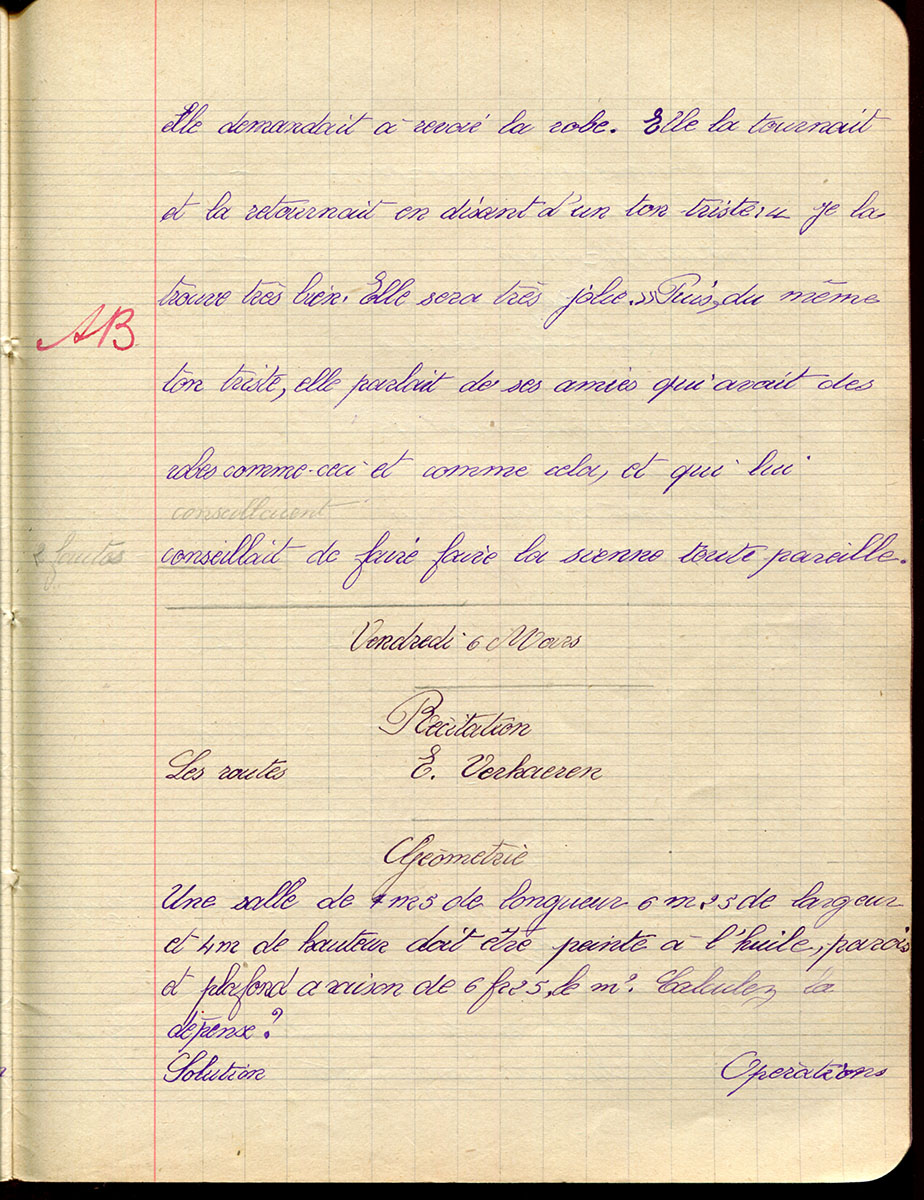 Elle demandait à revoir la robe. Elle la tournait
et la retournait en disant d'un ton triste : « Je la
trouve très bien. Elle sera très jolie. » Puis, du même
AB
ton triste, elle parlait de ses amies qui avait des
robes comme-ceci et comme cela, et qui lui
conseillaient
2 fautes
conseillait de faire faire la sienne toute pareille.
Vendredi 6 Mars
Récitation
Les routes E. Verhaeren
Géométrie
Une salle de m5 de longueur 6 m 25 de largeur
et 4m de hauteur doit être peinte à l'huile, parois
et plafond a raison de 6 fr25, le m². Calculez la
dépense?
Solution Opérations